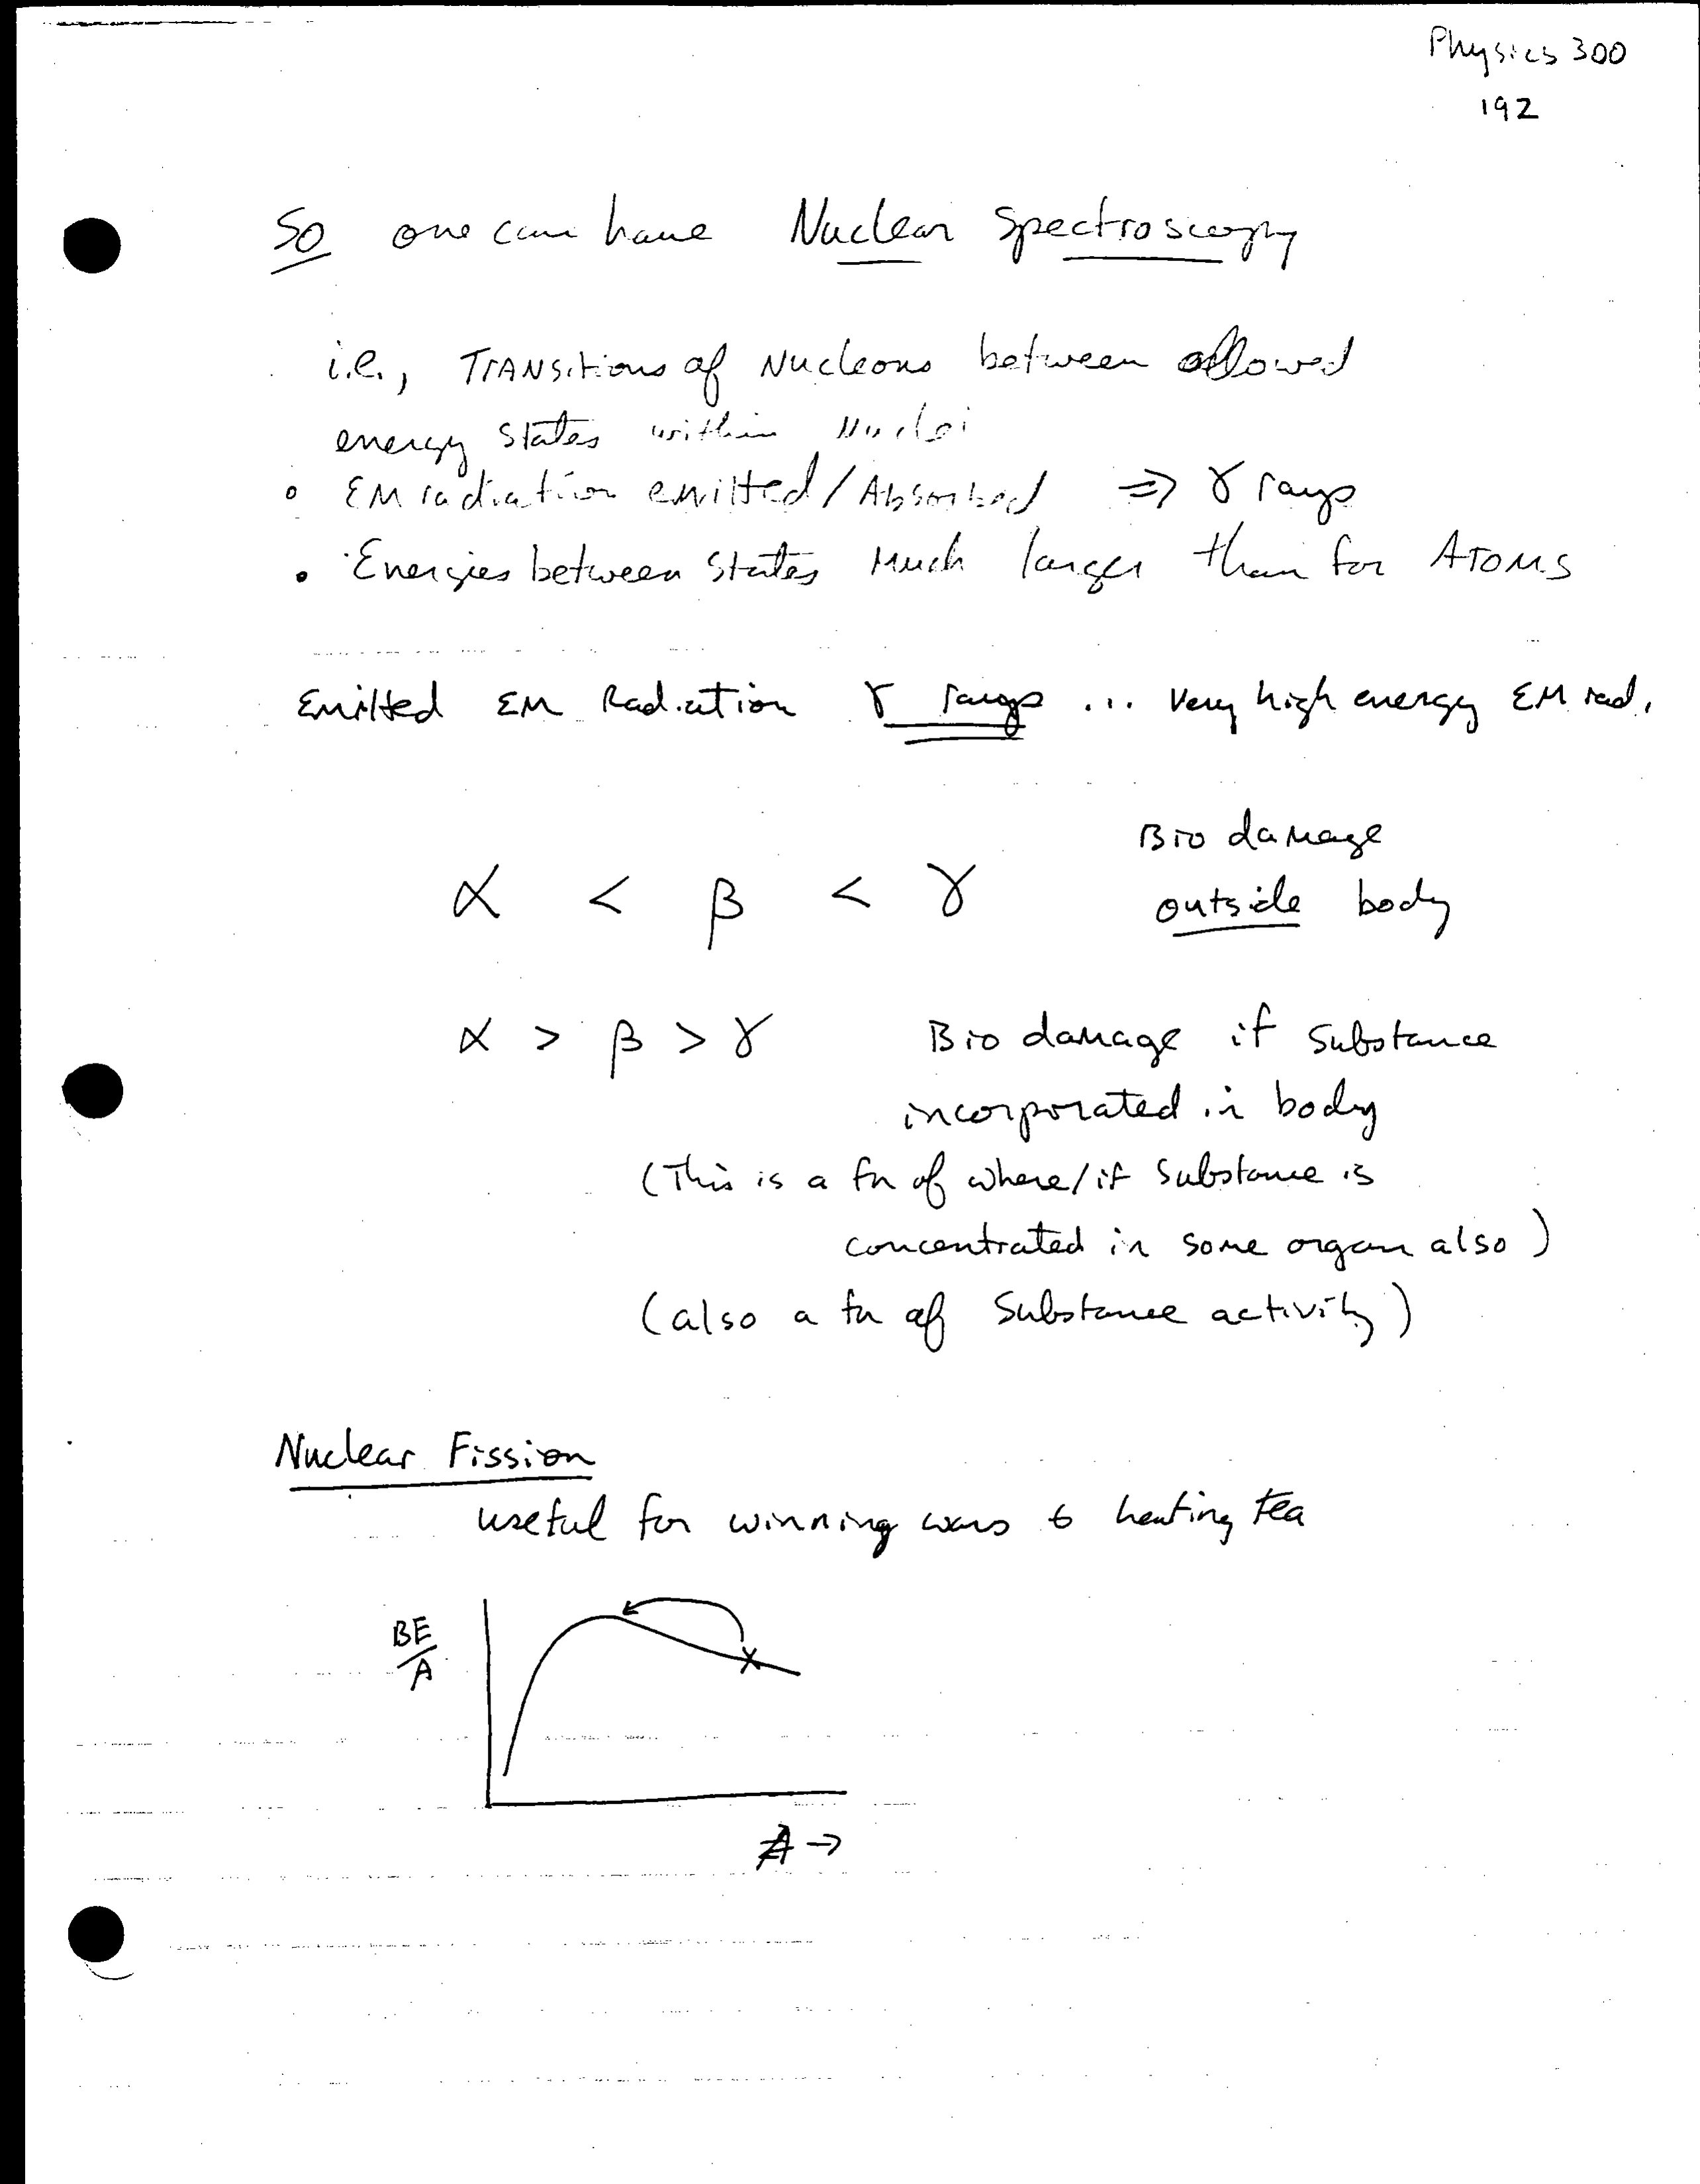 Physics 300
192
So one can have Nuclear Spectroscopy
i.e., TRANSitions of Nucleons between allowed
energy States within Nuclei
• EM radiation emitted/Absorbed ⇒ γ rays
• Energies between States Much larger than for ATOMS
Emitted EM Radiation γ rays ... very high energy EM rad.
α < β < γ Bio damage
outside body
α > β > γ Bio damage if Substance
incorporated in body
(This is a fn of where/if Substance is
concentrated in some organ also)
(also a fn of Substance activity)
Nuclear Fission
useful for winning wars & heating tea
BE
A
A →